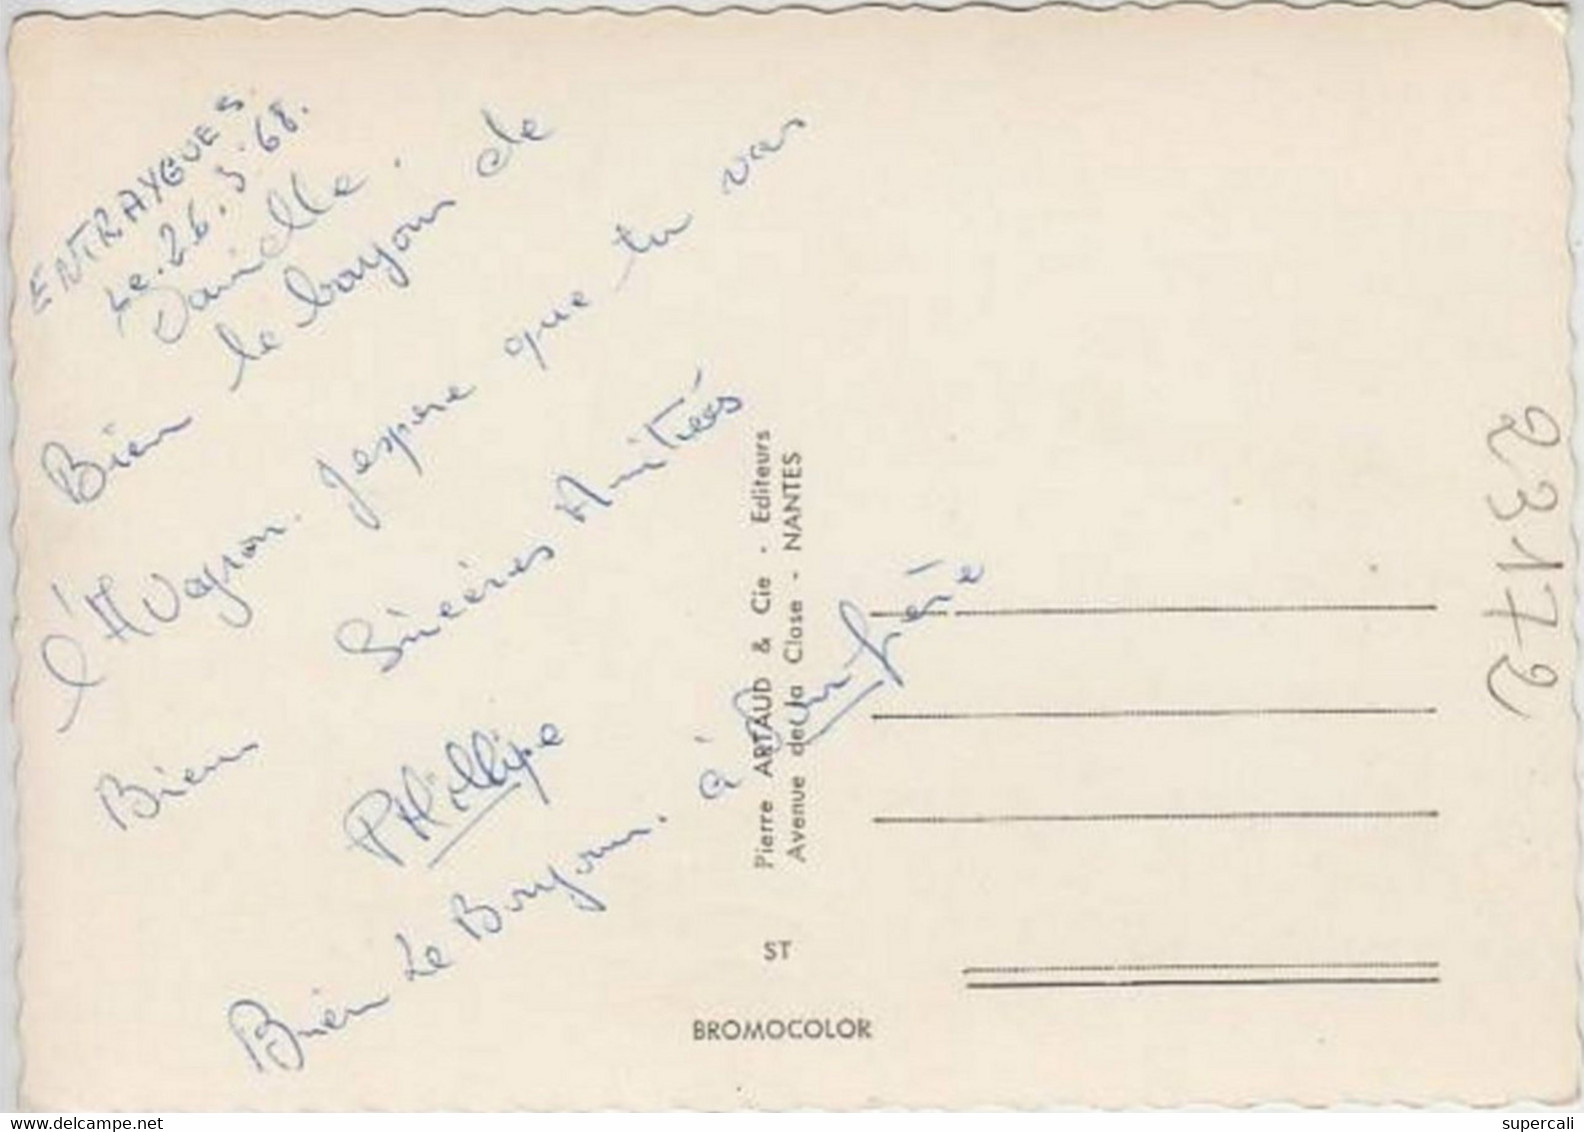 ENTRAYGUES
Le. 26. 3. 68.
Danielle.
Bien le bonjour de
l'AVeyron. J'espere que tu vas
Bien Sincères Amitiés
PHillipe
Bien Le Bonjour. à
Pierre ARTAUD & Cie - Editeurs
Avenue de la Close - NANTES
ST
BROMOCOLOR
23172
www.delcampe.net
supercali